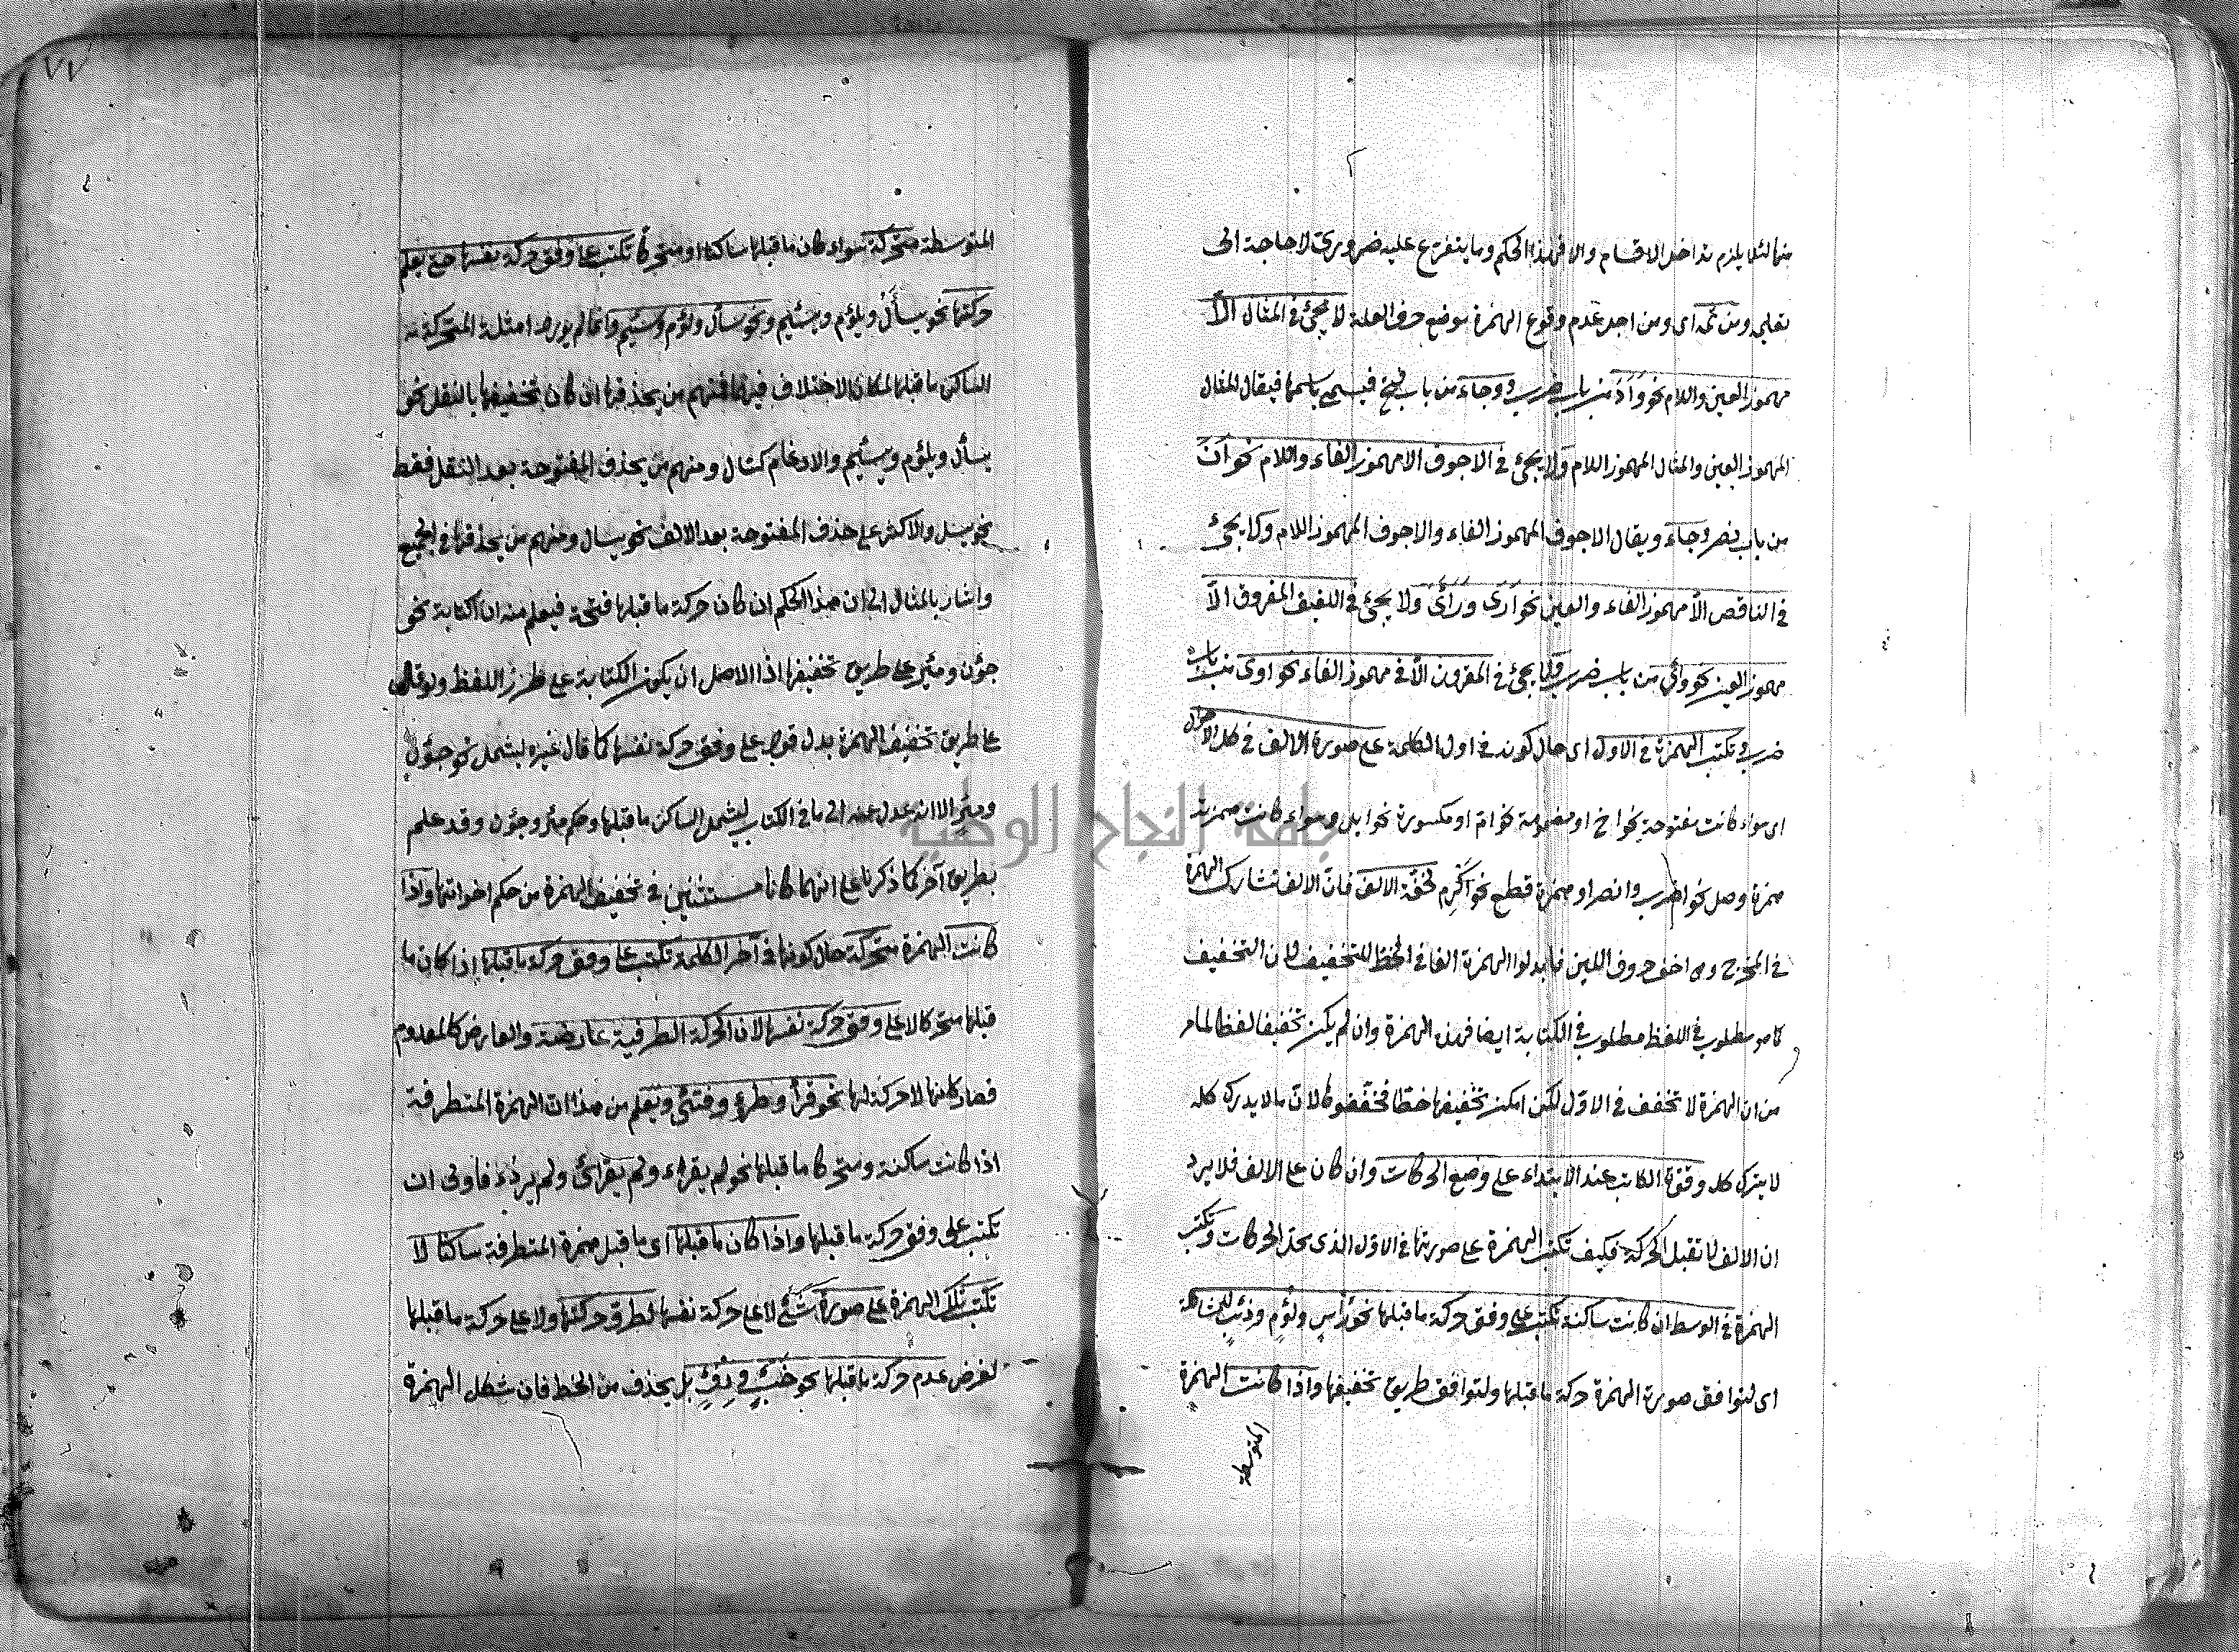 منها لئلا يلزم تداخل الاقسام والا فهذا الحكم وما يتفرع عليه ضروري لا حاجة الى
تعليمه ومن ثمه اى ومن اجل عدم وقوع الهمزة موضع حرف العلة لا يجئ فى المثال الا
مهموز العين واللام نحو وأد من باب ضرب ووجاء من باب فتح فيسمى باسمها فيقال المثال
المهموز العين والمثال المهموز اللام ولا يجئ فى الاجوف الا مهموز الفاء واللام نحو آن
من باب نصر وجاء ويقال الاجوف المهموز الفاء والاجوف المهموز اللام ولا يجئ
فى الناقص الا مهموز الفاء والعين نحو ارى ورأى ولا يجئ فى اللفيف المفروق الا
مهموز العين نحو وأى من باب ضرب ولا يجئ فى المقرون الا فى مهموز الفاء نحو اوى من باب
ضرب وتكتب الهمزة فى الاول اى حال كونه فى اول الكلمة على صورة الالف فى كل الاحوال
اى سواء كانت مفتوحة نحو اخ او مضمومة نحو ام او مكسورة نحو ابل وسواء كانت همزته
همزة وصل نحو اضرب وانصر او همزة قطع نحو أكرم لخفة الالف فان الالف تشارك الهمزة
فى المخرج وهى اخف حروف اللين فابدلوا الهمزة الفا فى الخط للتخفيف فان التخفيف
كما هو مطلوب فى اللفظ مطلوب فى الكتابة ايضا فهذه الهمزة وان لم يكن تخفيفا لفظا لما مر
من ان الهمزة لا تخفف فى الاول لكن امكن تخفيفها خطا فخففوها لان ما لا يدرك كله
لا يترك كله وقوة الكاتب عند الابتداء على وضع الحركات وان كان على الالف فلا يرد
ان الالف لا تقبل الحركة فكيف تكتب الهمزة على صورتها فى الاول الذى محل الحركات وتكتب
الهمزة فى الوسط ان كانت ساكنة تكتب على وفق حركة ما قبلها نحو رأس ولؤم وذئب للمشاكلة
اى لتوافق صورة الهمزة حركة ما قبلها ولتوافق طريق تخفيفها واذا كانت الهمزة
المتوسطة
٧٧
المتوسطة متحركة سواء كان ما قبلها ساكنا او متحركا تكتب على وفق حركة نفسها حتى يعلم
حركتها نحو يسأل ويلؤم ويسئم ونحو سأل ولؤم وسئم وانما لم يورد امثلة المتحركة
الساكن ما قبلها لمكان الاختلاف فيها فمنهم من يحذفها ان كان تخفيفها بالنقل نحو
يسأل ويلؤم ويسئم والادغام كسال ومنهم من يحذف المفتوحة بعد النقل فقط
نحو يسل والاكثر على حذف المفتوحة بعد الالف نحو يسال ومنهم من يحذفها فى الجميع
واشار بالمثال الى ان هذا الحكم ان كان حركة ما قبلها فتحة فيعلم منه ان كتابة نحو
جؤن ومئر على طريق تخفيفها اذا الاصل ان يكون الكتابة على طرز اللفظ ولو قال
على طريق تخفيف الهمزة بدل قوله على وفق حركة نفسها كما قال غيره ليشمل نحو جؤن
ومئر الا انه عدل عنه الى ما فى الكتاب ليشمل الساكن ما قبلها وحكم مئر وجؤن وقد علم
بطريق آخر كما ذكرنا على انهما كانا مستثنين فى تخفيف الهمزة من حكم اخواتها واذا
كانت الهمزة متحركة حال كونها فى آخر الكلمة تكتب على وفق حركة ما قبلها اذا كان ما
قبلها متحركا لا على وفق حركة نفسها لان الحركة الطرفية عارضة والعارض كالمعدوم
فصار كانها لا حركة لها نحو قرأ وطرؤ وفتئ ويعلم من هذا ان الهمزة المتطرفة
اذا كانت ساكنة ومتحركا ما قبلها نحو لم يقراء ولم يقرائ ولم يردء فاولى ان
تكتب على وفق حركة ما قبلها واذا كان ما قبلها اى ما قبل همزة المتطرفة ساكنا لا
تكتب تلك الهمزة على صورة شئ لا على حركة نفسها لطرو حركتها ولا على حركة ما قبلها
لفرض عدم حركة ما قبلها نحو خبئ ودفئ بل يحذف من الخط فان شكل الهمزة
جامعة النجاح الوطنية